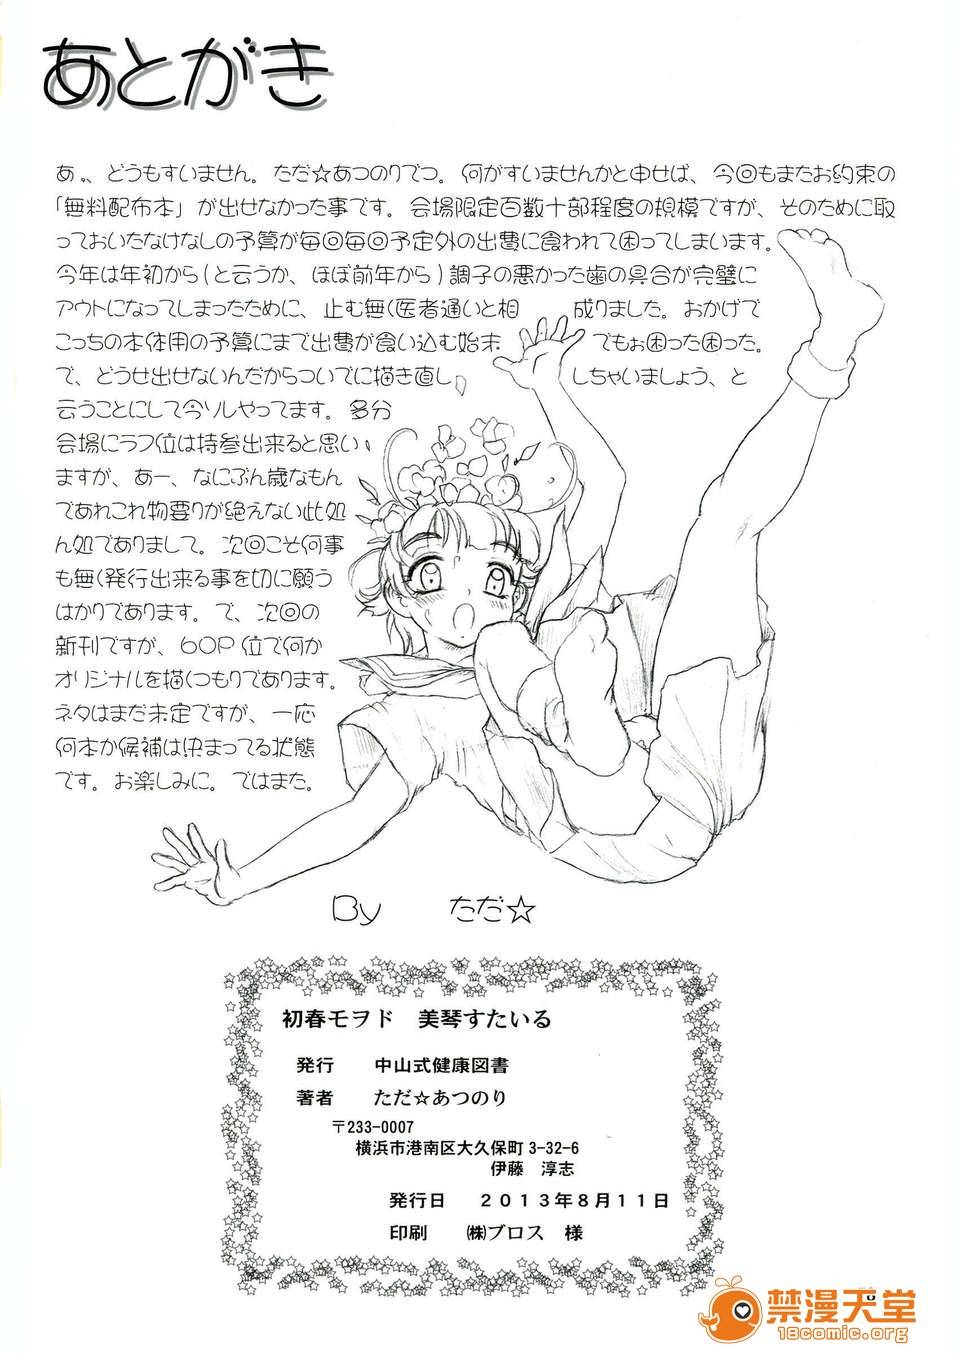 あとがき
あ、、どうもすいません。ただ☆あつのりでつ。何がすいませんかと申せば、今回もまたお約束の
「無料配布本」が出せなかった事です。会場限定百数十部程度の規模ですが、そのために取
っておいたなけなしの予算が毎回毎回予定外の出費に食われて困ってしまいます。
今年は年初から(と云うか、ほぼ前年から)調子の悪かった歯の具合が完璧に
アウトになってしまったために、止む無く医者通いと相 成りました。おかげで
こっちの本体用の予算にまで出費が食い込む始末 でもぉ困った困った。
で、どうせ出せないんだからついでに描き直し しちゃいましょう、と
云うことにして今ソレやってます。多分
会場にラフ位は持参出来ると思い
ますが、あー、なにぶん歳なもん
であれこれ物要りが絶えない此処
ん処でありまして。次回こそ何事
も無く発行出来る事を切に願う
ばかりであります。で、次回の
新刊ですが、60P位で何か
オリジナルを描くつもりであります。
ネタはまだ未定ですが、一応
何本か候補は決まってる状態
です。お楽しみに。ではまた。
By ただ☆
初春モヲド 美琴すたいる
発行 中山式健康図書
著者 ただ☆あつのり
〒233-0007
横浜市港南区大久保町3-32-6
伊藤 淳志
発行日 2013年8月11日
印刷 ㈱ブロス 様
禁漫天堂
18comic.org